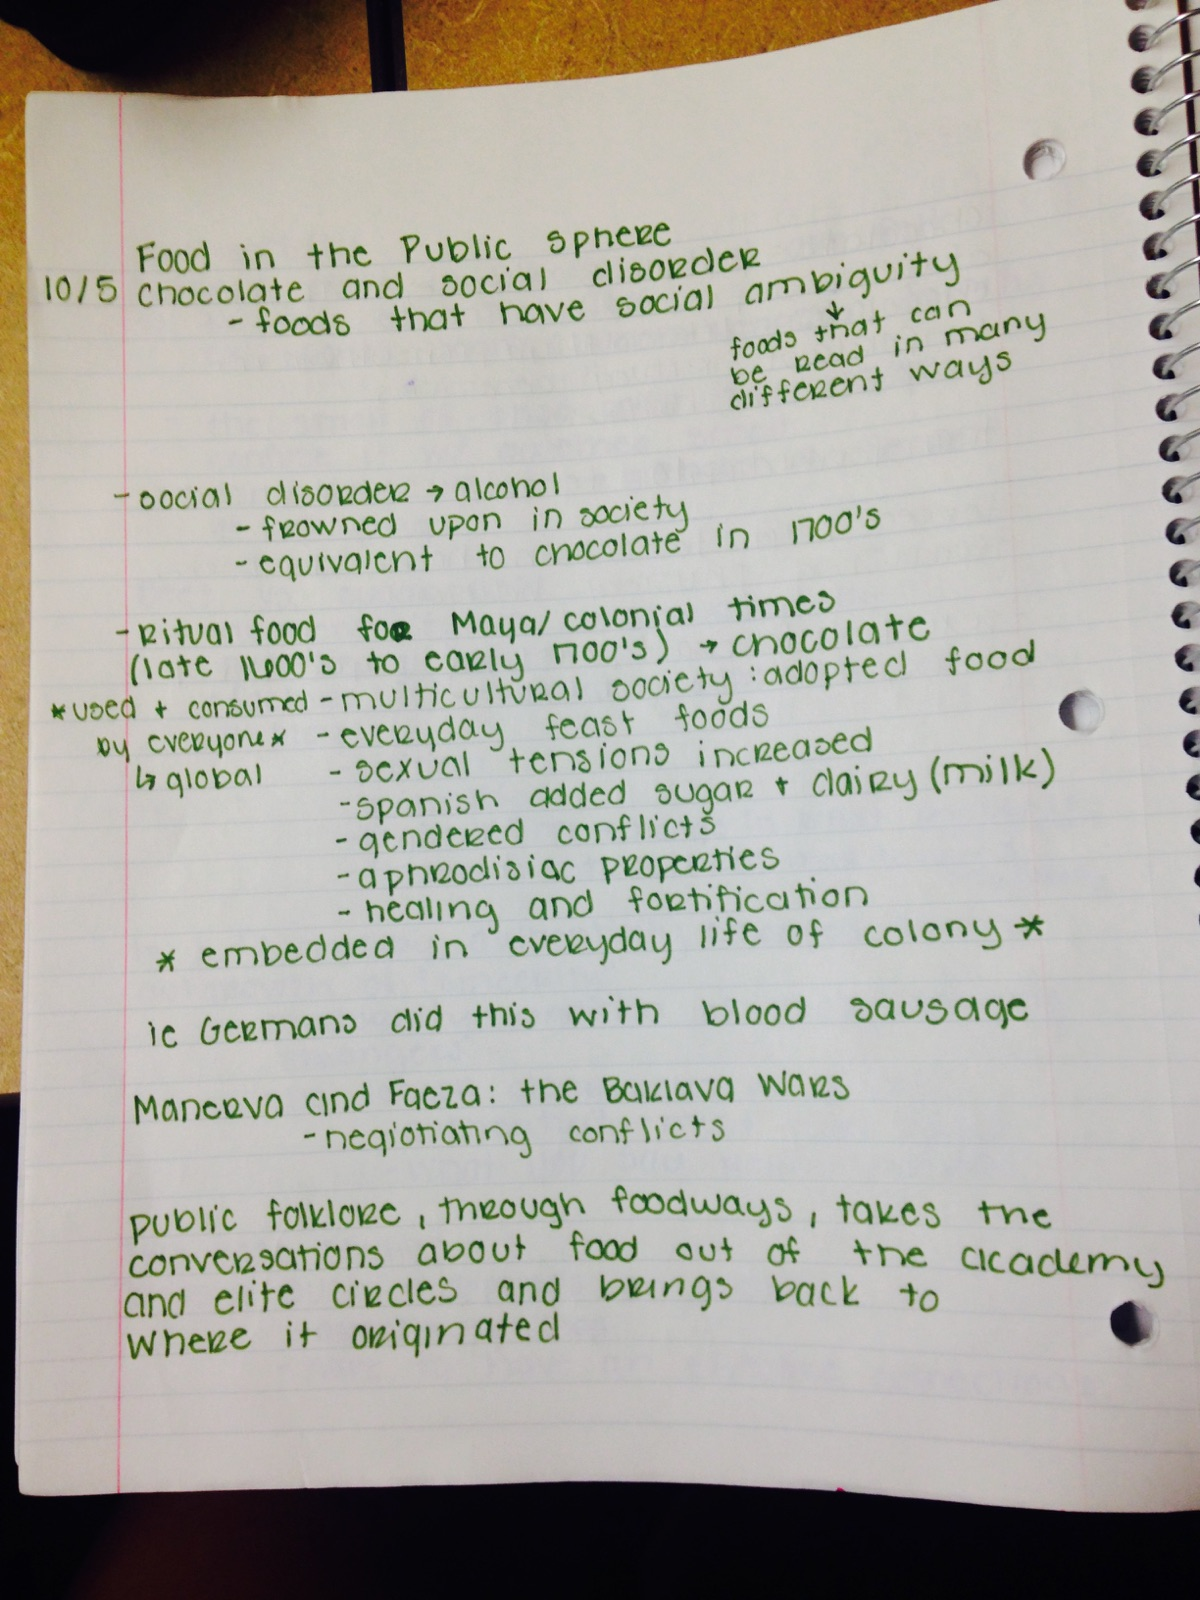 Food in the Public sphere
10/5 chocolate and social disorder
- foods that have social ambiguity
↓
foods that can
be read in many
different ways
- social disorder → alcohol
- frowned upon in society
- equivalent to chocolate in 1700's
- Ritual food for Maya/colonial times
(late 1600's to early 1700's) → chocolate
*used + consumed - multicultural society : adopted food
by everyone* - everyday feast foods
↳ global - sexual tensions increased
- spanish added sugar + dairy (milk)
- gendered conflicts
- aphrodisiac properties
- healing and fortification
* embedded in everyday life of colony *
ie Germans did this with blood sausage
Manerva and Faeza: the Baklava Wars
- negiotiating conflicts
public folklore, through foodways, takes the
conversations about food out of the academy
and elite circles and brings back to
where it originated